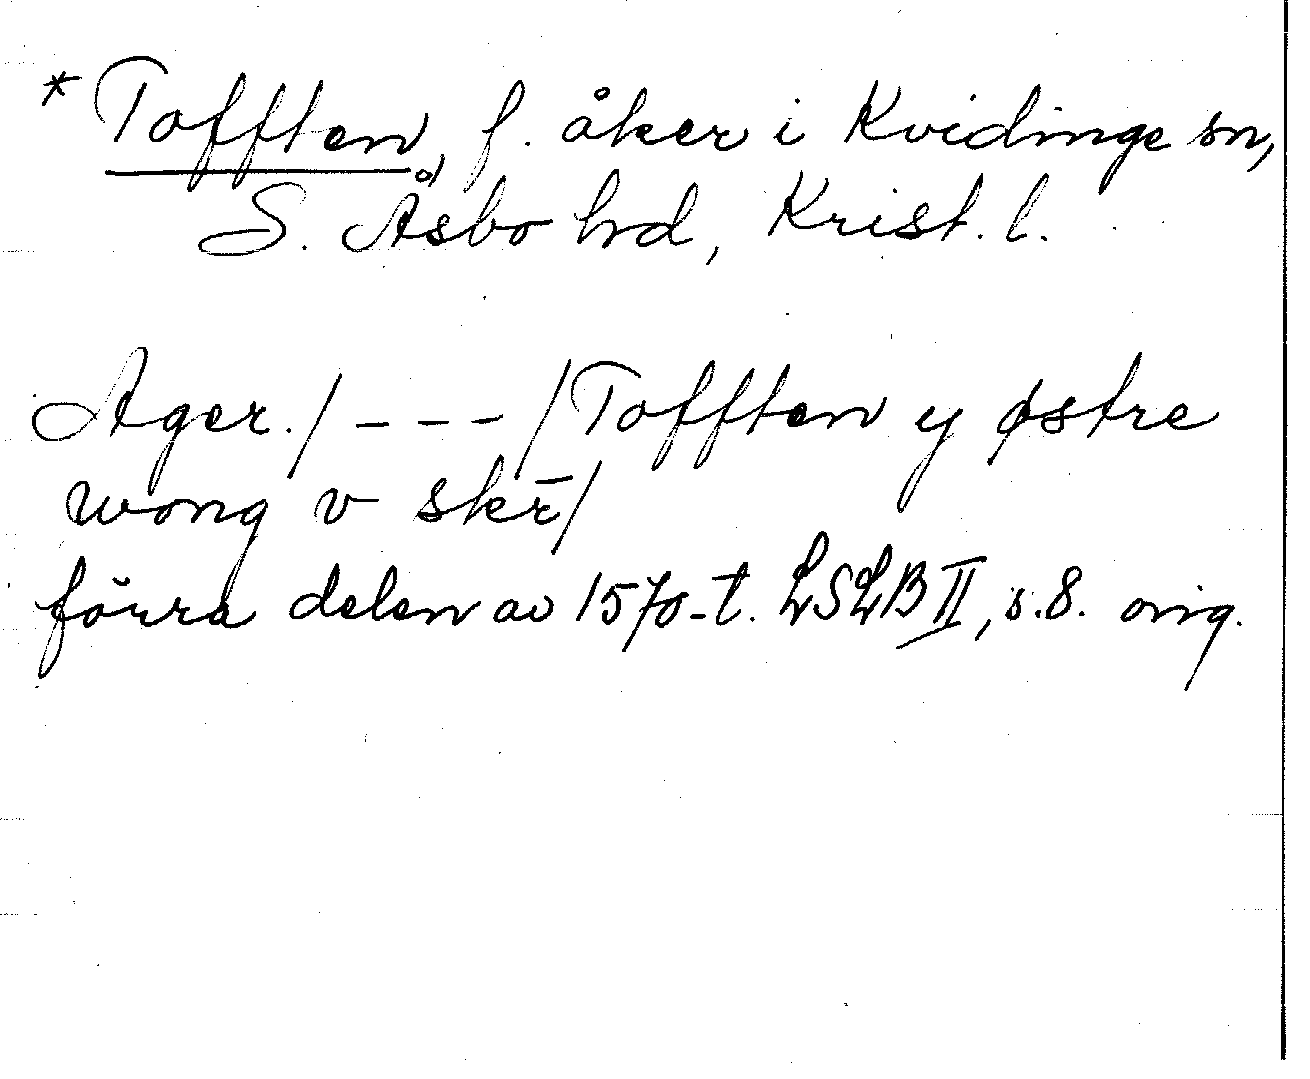 * Tofften, f. åker i Kvidinge sn,
S. Åsbo hd, Krist. l.
Ager./ - - - /Tofften y østre
wong v skr̄/
förra delen av 1570-t. LSLB II, s.8. orig.